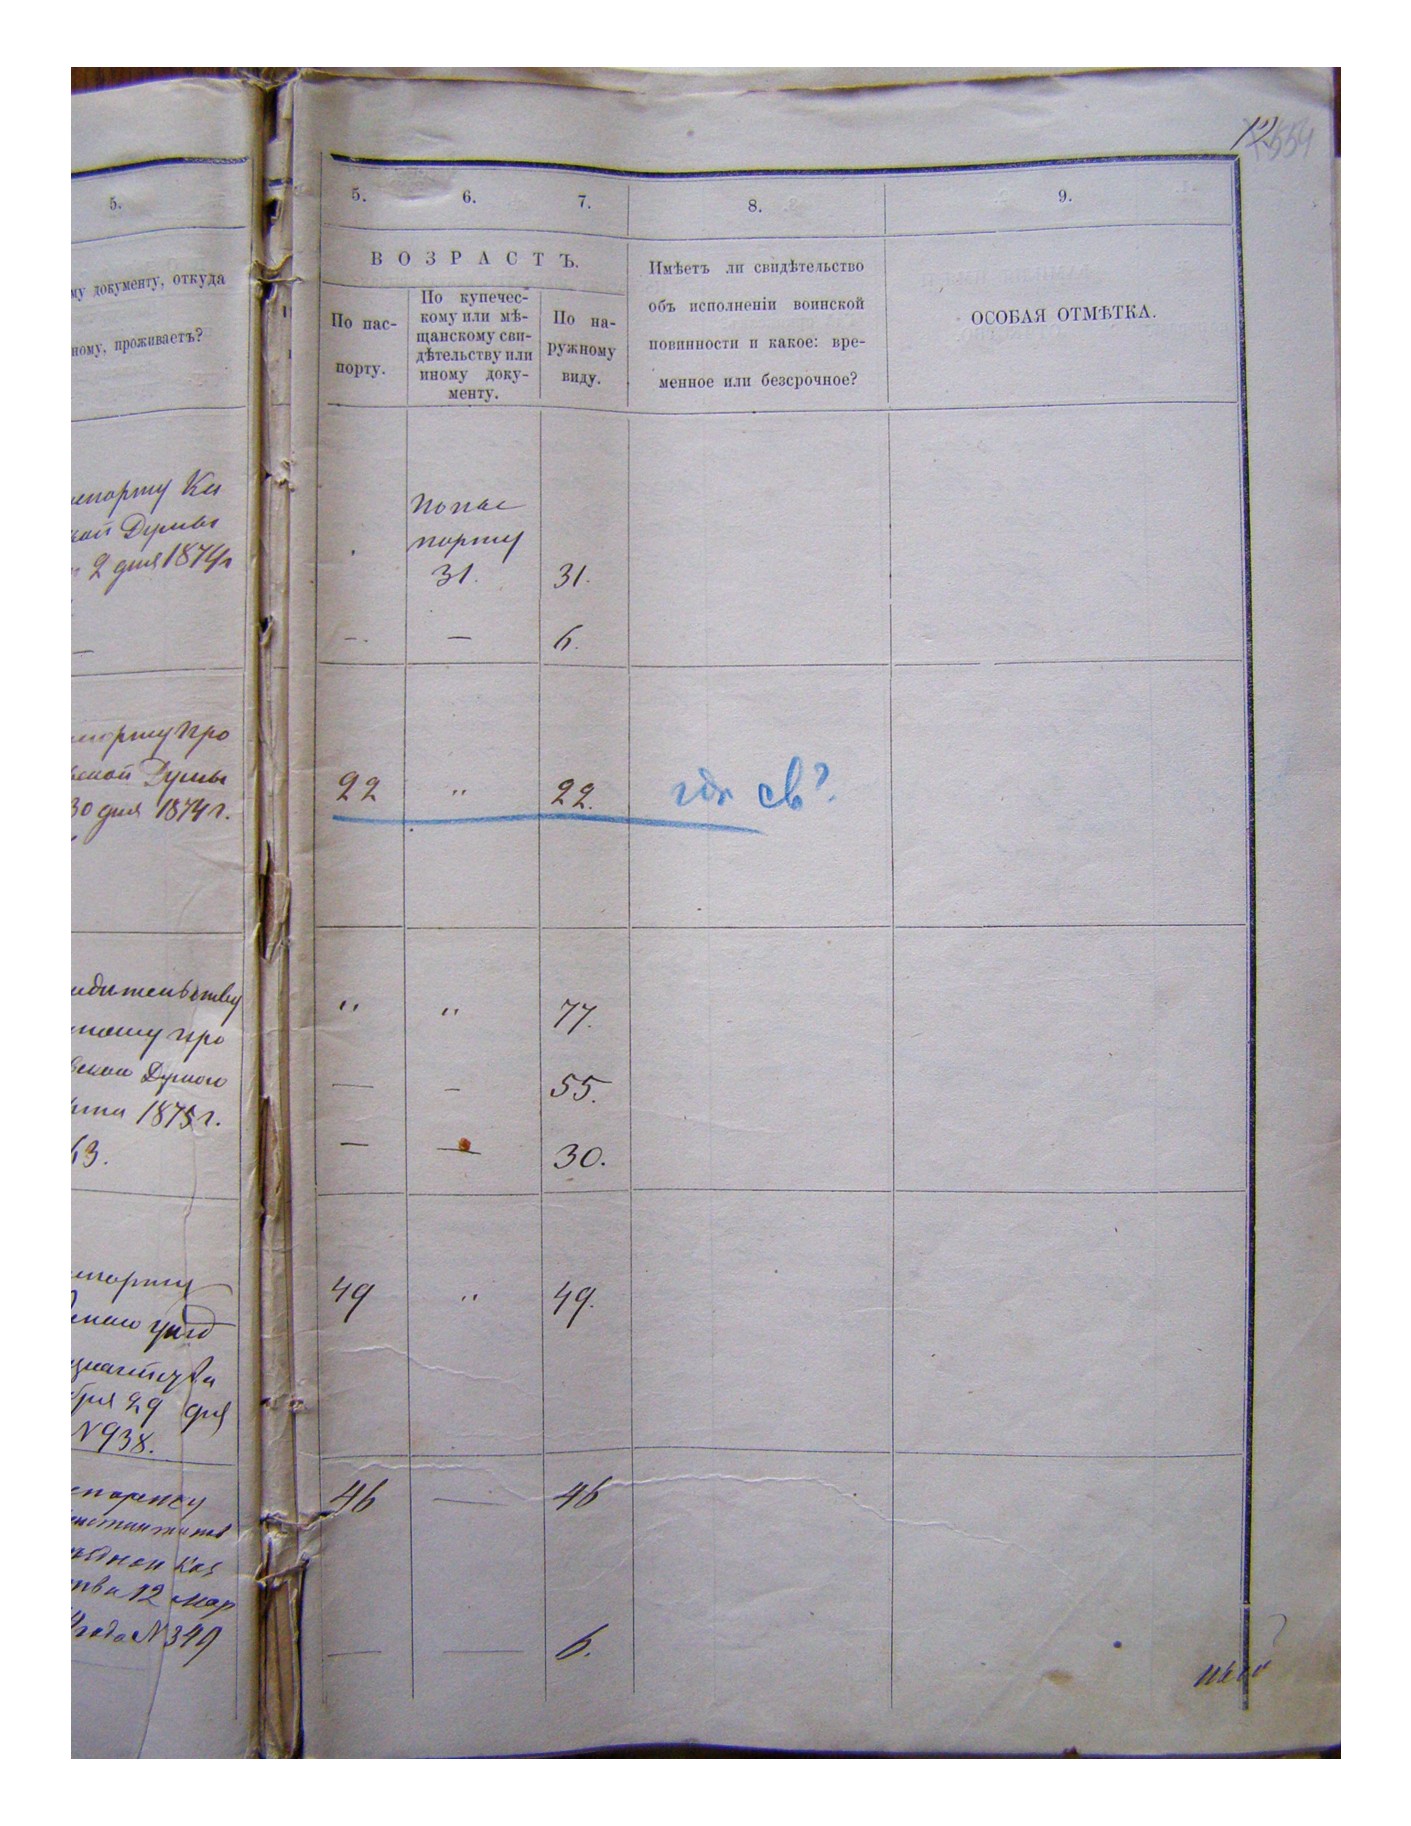 12
554
5.
му документу, откуда
ному, проживаетъ?
порту Ки
кой Думы
2 дня 1874 г
порту Про
вской Думы
30 дня 1874 г.
идѣтельству
ному Про
1875 г.
63.
порту
29 дня
N 938.
12 мар
года N 349
5. 6. 7. 8. 9.
ВОЗРАСТЪ.
По пас-
порту.
По купечес-
кому или мѣ-
щанскому сви-
дѣтельству или
иному доку-
менту.
По на-
ружному
виду.
Имѣетъ ли свидѣтельство
объ исполненіи воинской
повинности и какое: вре-
менное или безсрочное?
ОСОБАЯ ОТМѢТКА.
По пас
порту
31. 31.
— — 6.
22 " 22. гдѣ св?
" " 77.
— — 55.
— — 30.
49 " 49.
46 — 46
— — 6.